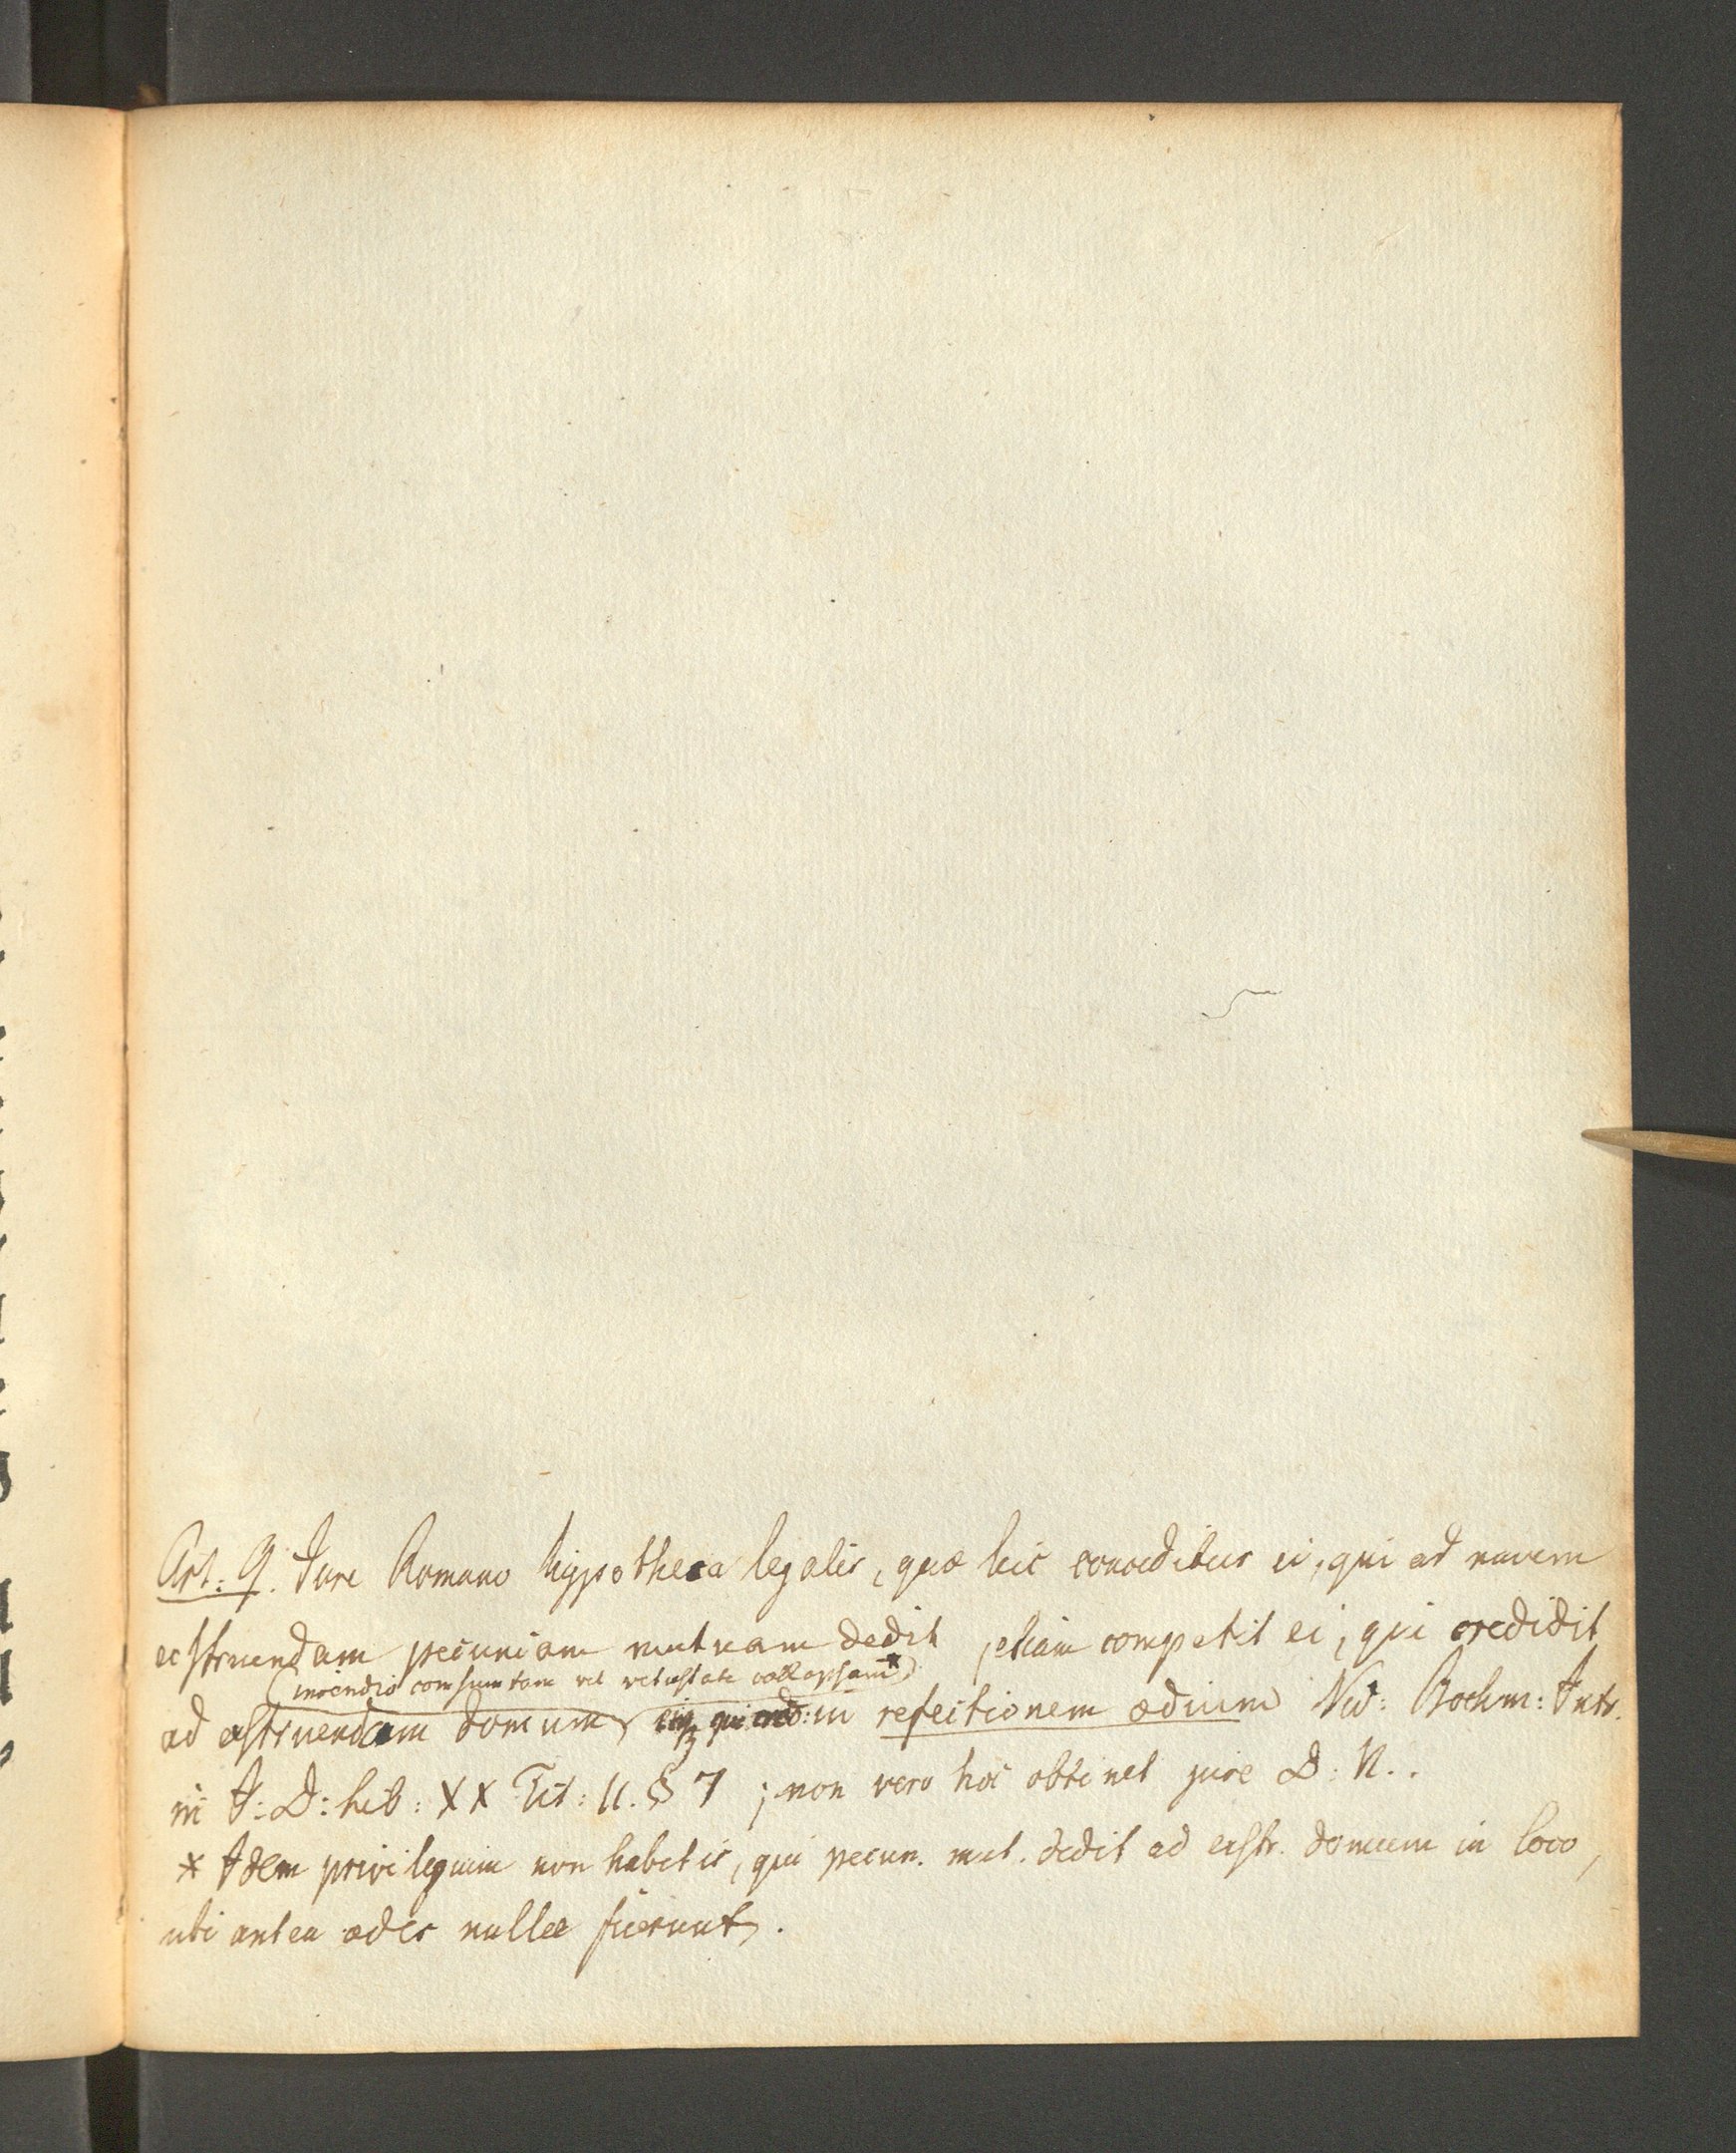 Art: 9. Jure Romano hypotheca legalis, quæ heic conceditur ei, qui ad navem
exstruendam pecuniam mutuam dedit, etiam competit ei, qui credidit
(incendio comsumtam vel vetustate collapsam*)
ad exstruendam domum, in refectionem ædium Vid: Boehm: Intr.
in J: D: Lib: XX Tit: II. § 7 ; non vero hoc obtinet jure D: N..
* Idem privilegium non habet is, qui pecun. mut. dedit ad exstr. domum in loco,
ubi antea ædes nullæ fuerunt.